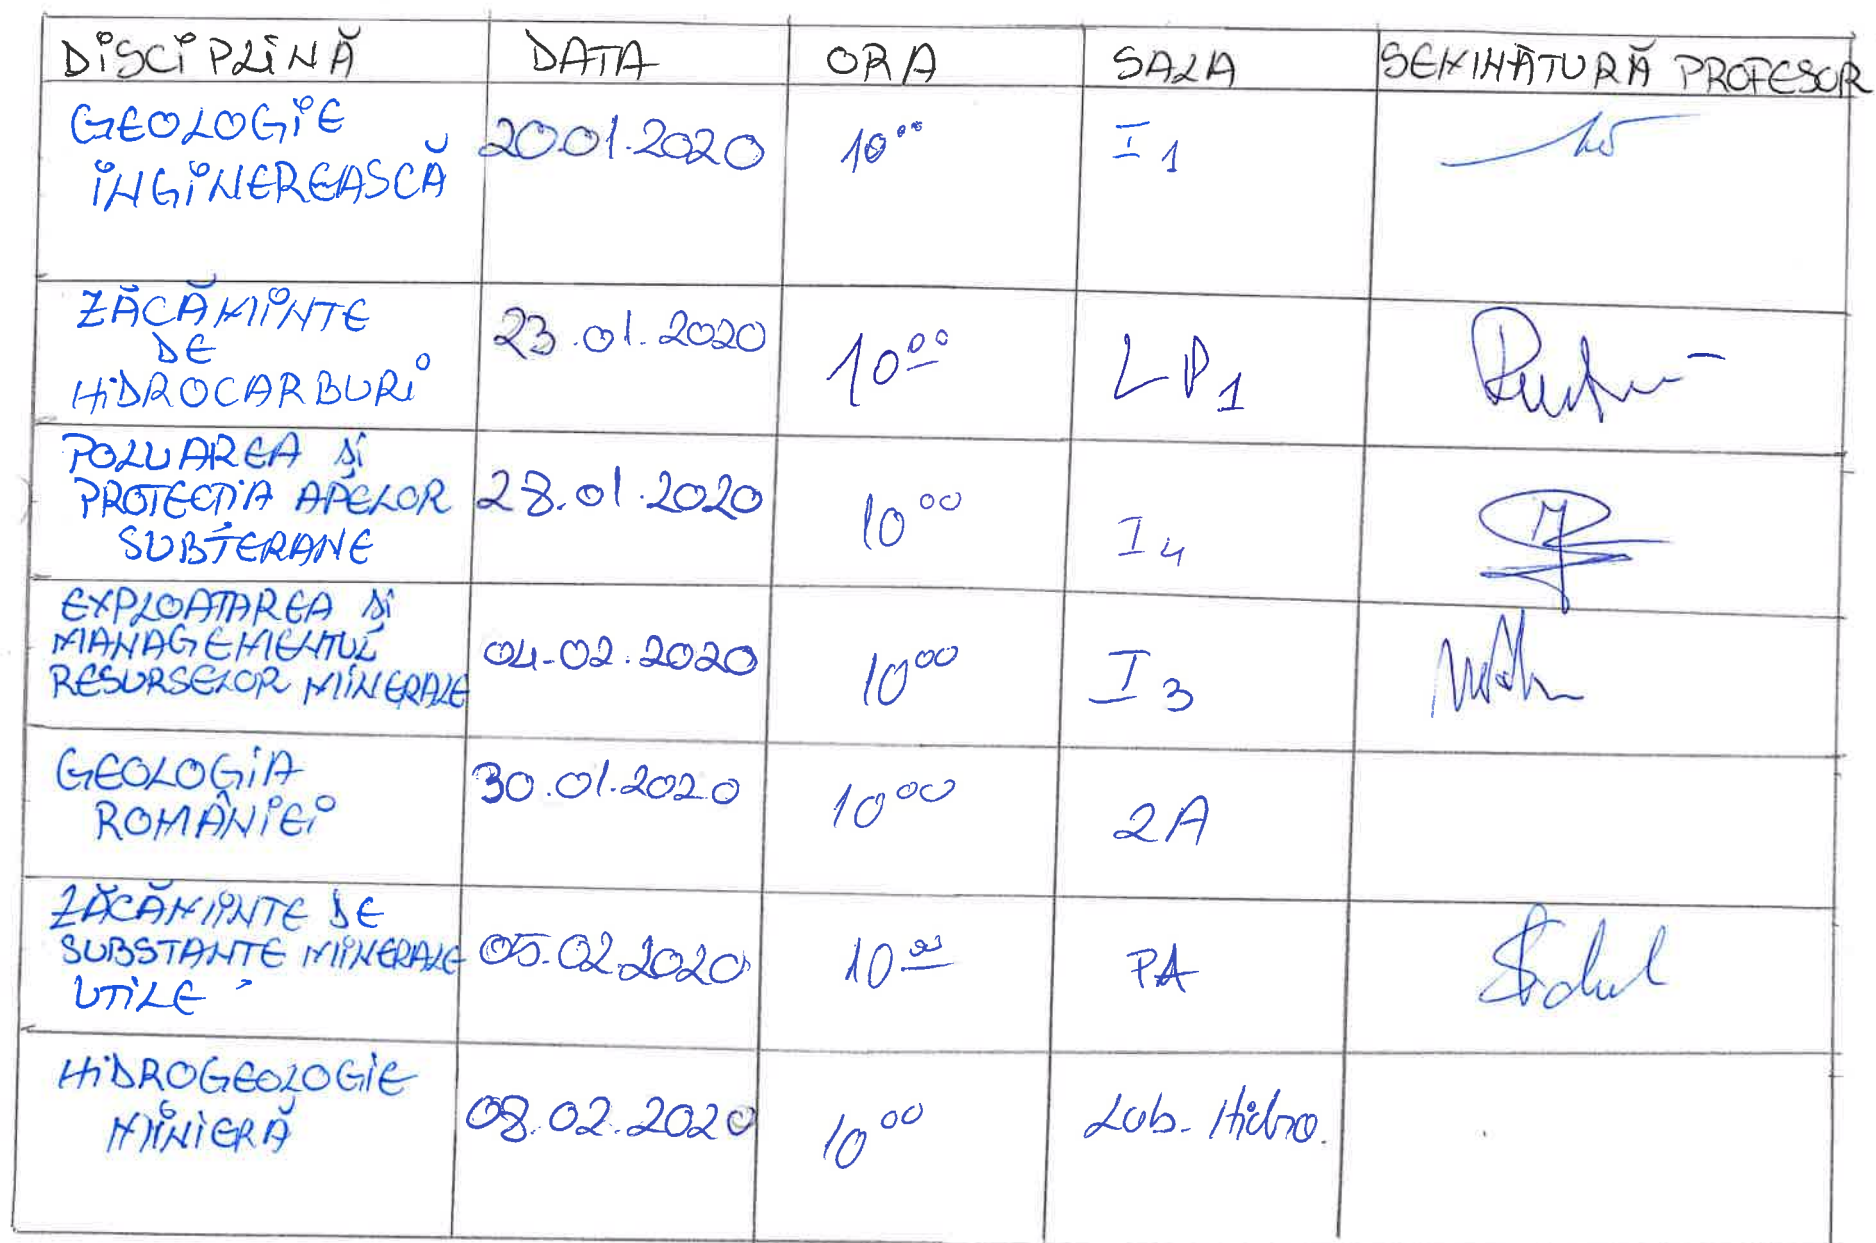 DISCIPLINĂ DATA ORA SALA SEMINĂTURĂ PROFESOR
GEOLOGIE
INGINEREASCĂ 20.01.2020 10⁰⁰ I 1
ZĂCĂMINTE
DE
HIDROCARBURI 23.01.2020 10⁰⁰ LP1
POLUAREA ȘI
PROTECȚIA APELOR
SUBTERANE 28.01.2020 10⁰⁰ I 4
EXPLOATAREA ȘI
MANAGEMENTUL
RESURSELOR MINERALE 04.02.2020 10⁰⁰ I 3
GEOLOGIA
ROMÂNIEI 30.01.2020 10⁰⁰ 2A
ZĂCĂMINTE DE
SUBSTANȚE MINERALE
UTILE 05.02.2020 10⁰⁰ PA
HIDROGEOLOGIE
MINIERĂ 08.02.2020 10⁰⁰ Lab. Hidro.